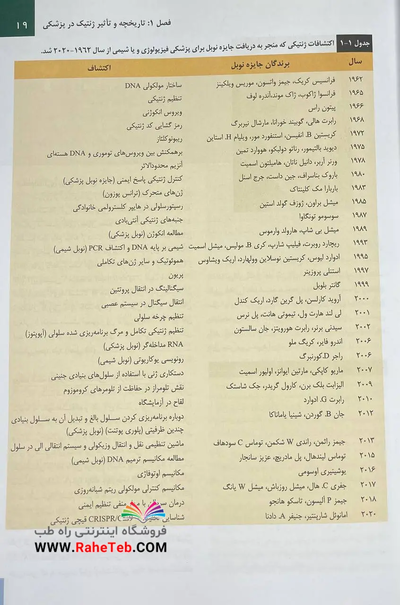 فصل ۱: تاریخچه و تأثیر ژنتیک در پزشکی ۱۹
جدول ۱-۱ اکتشافات ژنتیکی که منجر به دریافت جایزه نوبل برای پزشکی فیزیولوژی و یا شیمی از سال ۱۹۶۲-۲۰۲۰ شد.
سال برندگان جایزه نوبل اکتشاف
۱۹۶۲ فرانسیس کریک، جیمز واتسون، موریس ویلکینز ساختار مولکولی DNA
۱۹۶۵ فرانسوا ژاکوب، ژاک موند، آندره لوف تنظیم ژنتیکی
۱۹۶۶ پیتون راس ویروس انکوژنی
۱۹۶۸ رابرت هالی، گوبیند خورانا، مارشال نیربرگ رمز گشایی کد ژنتیکی
۱۹۷۲ کریستین B. انفیسن، استنفورد مور، ویلیام H. استاین ریبونوکلئاز
۱۹۷۵ دیوید بالتیمور، رناتو دولبکو، هووارد تمین برهمکنش بین ویروس‌های توموری و DNA هسته‌ای
۱۹۷۸ ورنر آربر، دانیل ناتان، هامیلتون اسمیت آنزیم محدودالاثر
۱۹۸۰ باروک بناسراف، جین داست، جرج اسنل کنترل ژنتیکی پاسخ ایمنی (جایزه نوبل پزشکی)
۱۹۸۳ باربارا مک کلینتاک ژن‌های متحرک (ترانس پوزون)
۱۹۸۵ میشل براون، ژوزف گولد استین رسپتورسلولی در هایپر کلسترولمی خانوادگی
۱۹۸۷ سوسومو تونگاوا جنبه‌های ژنتیکی آنتی‌بادی
۱۹۸۹ میشل بی شاپ، هارولد وارموس مطالعه انکوژن (نوبل پزشکی)
۱۹۹۳ ریچارد روبرت، فیلیپ شارپ، کری B. مولیس، میشل اسمیت شیمی بر پایه DNA و اکتشاف PCR (نوبل شیمی)
۱۹۹۵ ادوارد لیوس، کریستین نوسلاین وولهارد، اریک ویشاوس هموئوتیک و سایر ژن‌های تکاملی
۱۹۹۷ استنلی پروزینر پریون
۱۹۹۹ گانتر بلوبل سیگنالینگ در انتقال پروتئین
۲۰۰۰ آروید کارلسن، پل گرین گارد، اریک کندل انتقال سیگنال در سیستم عصبی
۲۰۰۱ لی لند هارت ول، تیموتی هانت، پل نرس تنظیم چرخه سلولی
۲۰۰۲ سیدنی برنر، رابرت هورویتز، جان سالستون تنظیم ژنتیکی تکامل و مرگ برنامه‌ریزی شده سلولی (آپوپتوز)
۲۰۰۶ اندرو فایر، کریگ ملو RNA مداخله‌گر (نوبل پزشکی)
۲۰۰۶ راجر D.کورنبرگ رونویسی یوکاریوتی (نوبل شیمی)
۲۰۰۷ ماریو کاپکی، مارتین ایوانز، اولیور اسمیت دستکاری ژنی با استفاده از سلول‌های بنیادی جنینی
۲۰۰۹ الیزابت بلک برن، کارول گریدر، جک شاستک نقش تلومراز در حفاظت از تلومرهای کروموزوم
۲۰۱۰ رابرت G. ادوارد لقاح در آزمایشگاه
۲۰۱۲ جان B. گوردن، شینیا یاماناکا دوباره برنامه‌ریزی کردن سلول بالغ و تبدیل آن به سلول‌های بنیادی
چندین ظرفیتی (پلوری پوتنت) (نوبل پزشکی)
۲۰۱۳ جیمز راتمن، راندی W شکمن، توماس C سودهاف ماشین تنظیمی نقل و انتقال وزیکولی و سیستم انتقالی الی در سلول
۲۰۱۵ توماس لیندهال، پل مادریچ، عزیز سانجار مطالعه مکانیسم ترمیم DNA (نوبل شیمی)
۲۰۱۶ یوشینیری اوسومی مکانیسم اوتوفاژی
۲۰۱۷ جفری C. هال، میشل روزباش، میشل W یانگ مکانیسم کنترلی مولکولی ریتم شبانه‌روزی
۲۰۱۸ جیمز P آلیسون، تاسکو هانجو درمان منفی تنظیم ایمنی
۲۰۲۰ امانوئل شارپنتیر، جنیفر A. دادنا شناسایی CRISPR/ قیچی ژنتیکی
فروشگاه اینترنتی راه طب
www.RaheTeb.com